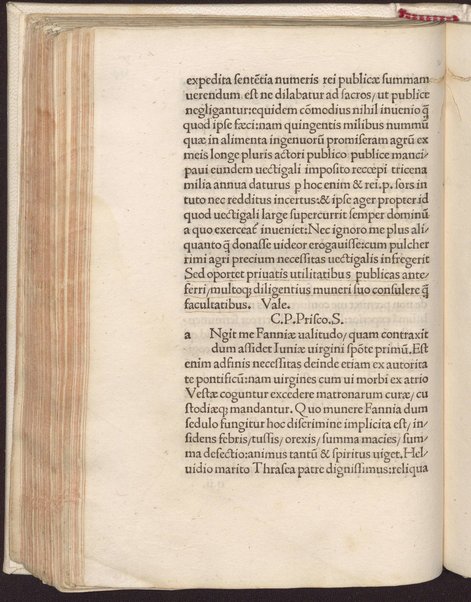 expedita sentētia numeris rei publicæ summam
uerendum est ne dilabatur ad sacros/ut publice
negligantur:equidem cōmodius nihil inuenio q̄
quod ipse fæci:nam quingentis milibus nummū
quæ in alimenta ingenuorū promiseram agrū ex
meis longe pluris actori publico publice manci-
paui eundem uectigali imposito reccepi tricena
milia annua daturus p hoc enim & rei.p. sors in
tuto nec redditus incertus:& ipse ager propter id
quod uectigali large supercurrit semper dominū
a quo exerceat̄ inueniet:Nec ignoro me plus ali-
quanto q̄ donasse uideor erogauisse:cum pulcher
rimi agri precium necessitas uectigalis infregerit
Sed oportet priuatis utilitatibus publicas ante-
ferri/multoq; diligentius muneri suo consulere q̄
facultatibus. Vale.
C.P.Prisco.S.
a Ngit me Fanniæ ualitudo/quam contraxit
dum assidet Iuniæ uirgini spōte primū.Est
enim adfinis necessitas deinde etiam ex autorita
te pontificū:nam uirgines cum ui morbi ex atrio
Vestæ coguntur excedere matronarum curæ/cu
stodiæq; mandantur. Quo munere Fannia dum
sedulo fungitur hoc discrimine implicita est/in-
sidens febris/tussis/orexis/summa macies/sum-
ma defectio:animus tantū & spiritus uiget.Hel-
uidio marito Thrasea patre dignissimus:reliqua